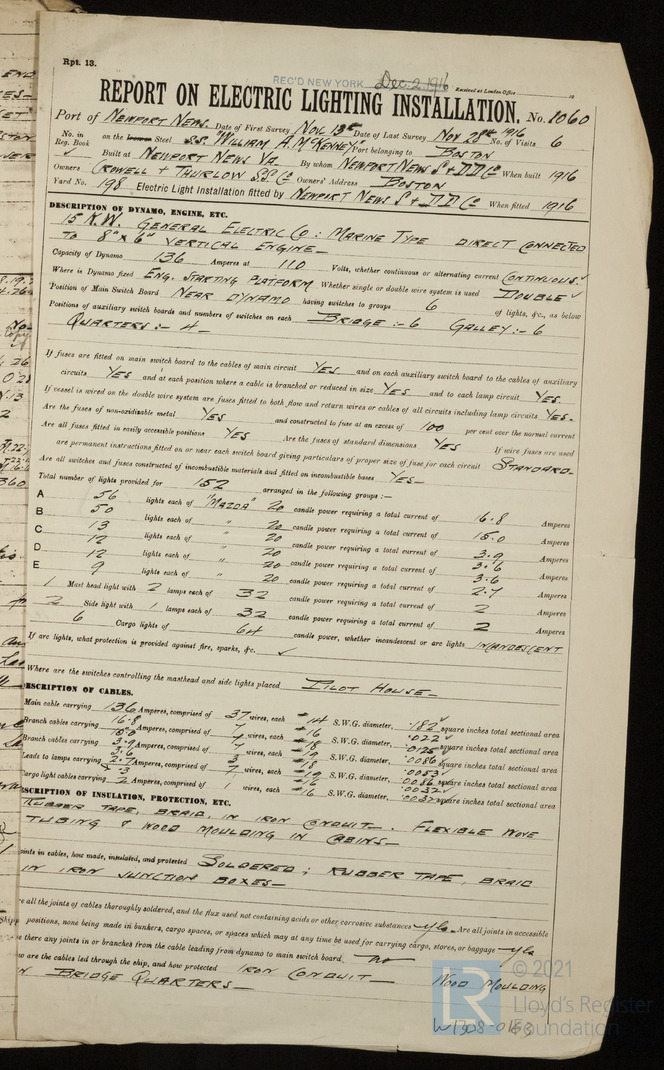 Rpt. 13.
REC'D NEW YORK Dec. 2. 1916 Received at London Office 19
REPORT ON ELECTRIC LIGHTING INSTALLATION. No. 1060
Port of Newport News. Date of First Survey Nov. 13th Date of Last Survey Nov 28th 1916 No. of Visits 6
No. in Reg. Book on the Iron or Steel S.S. "William A. McKenney" Port belonging to Boston
Built at Newport News Va. By whom Newport News S + D D Co When built 1916
Owners Crowell + Thurlow S.S. Co Owners' Address Boston
Yard No. 198 Electric Light Installation fitted by Newport News S + D D Co When fitted 1916
DESCRIPTION OF DYNAMO, ENGINE, ETC.
15 K.W. General Electric Co: Marine Type Direct Connected
to 8" x 6" Vertical Engine
Capacity of Dynamo 136 Amperes at 110 Volts, whether continuous or alternating current Continuous.
Where is Dynamo fixed Eng. Starting Platform Whether single or double wire system is used Double
Position of Main Switch Board Near Dynamo having switches to groups 6 of lights, &c., as below
Positions of auxiliary switch boards and numbers of switches on each Bridge:- 6 Galley:- 6
Quarters:- 4
If fuses are fitted on main switch board to the cables of main circuit Yes and on each auxiliary switch board to the cables of auxiliary
circuits Yes and at each position where a cable is branched or reduced in size Yes and to each lamp circuit Yes
If vessel is wired on the double wire system are fuses fitted to both flow and return wires or cables of all circuits including lamp circuits Yes.
Are the fuses of non-oxidizable metal Yes and constructed to fuse at an excess of 100 per cent over the normal current
Are all fuses fitted in easily accessible positions Yes Are the fuses of standard dimensions Yes If wire fuses are used
are permanent instructions fitted on or near each switch board giving particulars of proper size of fuse for each circuit Standard
Are all switches and fuses constructed of incombustible materials and fitted on incombustible bases Yes
Total number of lights provided for 152 arranged in the following groups:-
A 56 lights each of "Mazda" 20 candle power requiring a total current of 16.8 Amperes
B 50 lights each of " 20 candle power requiring a total current of 15.0 Amperes
C 13 lights each of " 20 candle power requiring a total current of 3.9 Amperes
D 12 lights each of " 20 candle power requiring a total current of 3.6 Amperes
E 12 lights each of " 20 candle power requiring a total current of 3.6 Amperes
9 lights each of " 20 candle power requiring a total current of 2.7 Amperes
1 Mast head light with 2 lamps each of 32 candle power requiring a total current of 2 Amperes
2 Side light with 1 lamps each of 32 candle power requiring a total current of 2 Amperes
6 Cargo lights of 64 candle power, whether incandescent or arc lights Incandescent
If arc lights, what protection is provided against fire, sparks, &c.
Where are the switches controlling the masthead and side lights placed Pilot House
DESCRIPTION OF CABLES.
Main cable carrying 136 Amperes, comprised of 37 wires, each #14 S.W.G. diameter, .182 square inches total sectional area
Branch cables carrying 16.8 Amperes, comprised of 7 wires, each #16 S.W.G. diameter, .022 square inches total sectional area
Branch cables carrying 3.9 Amperes, comprised of 7 wires, each S.W.G. diameter, square inches total sectional area
Leads to lamps carrying Amperes, comprised of wires, each S.W.G. diameter, square inches total sectional area
Cargo light cables carrying 2 Amperes, comprised of 1 wires, each #16 S.W.G. diameter, .0032 square inches total sectional area
DESCRIPTION OF INSULATION, PROTECTION, ETC.
Rubber Tape, Braid, in Iron Conduit. Flexible Wove
Tubing & Wood Moulding in Cabins
Joints in cables, how made, insulated, and protected Soldered; Rubber Tape, Braid
in Iron Junction Boxes
Are all the joints of cables thoroughly soldered, and the flux used not containing acids or other corrosive substances yes Are all joints in accessible
positions, none being made in bunkers, cargo spaces, or spaces which may at any time be used for carrying cargo, stores, or baggage yes
Are there any joints in or branches from the cable leading from dynamo to main switch board no
How are the cables led through the ship, and how protected Iron Conduit Wood Moulding
in Bridge Quarters
LR © 2021
Lloyd's Register
Foundation
W1208-0163